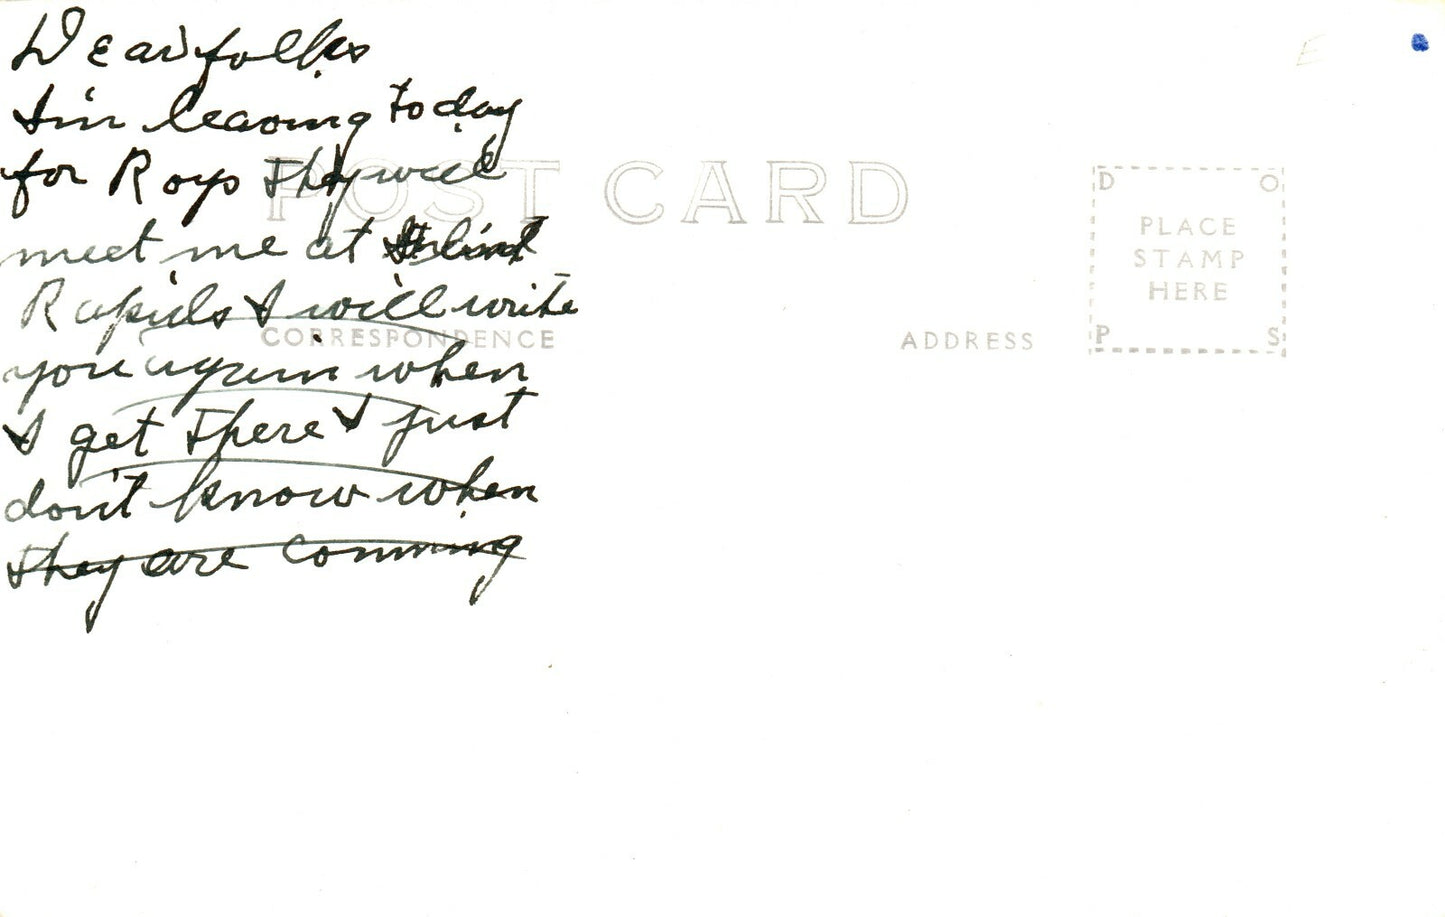 Dear folks
I'm leaving today
for Roys They will
meet me at
Rapids I will write
you again when
I get there I just
don't know when
they are comming
POST CARD
CORRESPONDENCE
ADDRESS
D O
PLACE
STAMP
HERE
P S
E